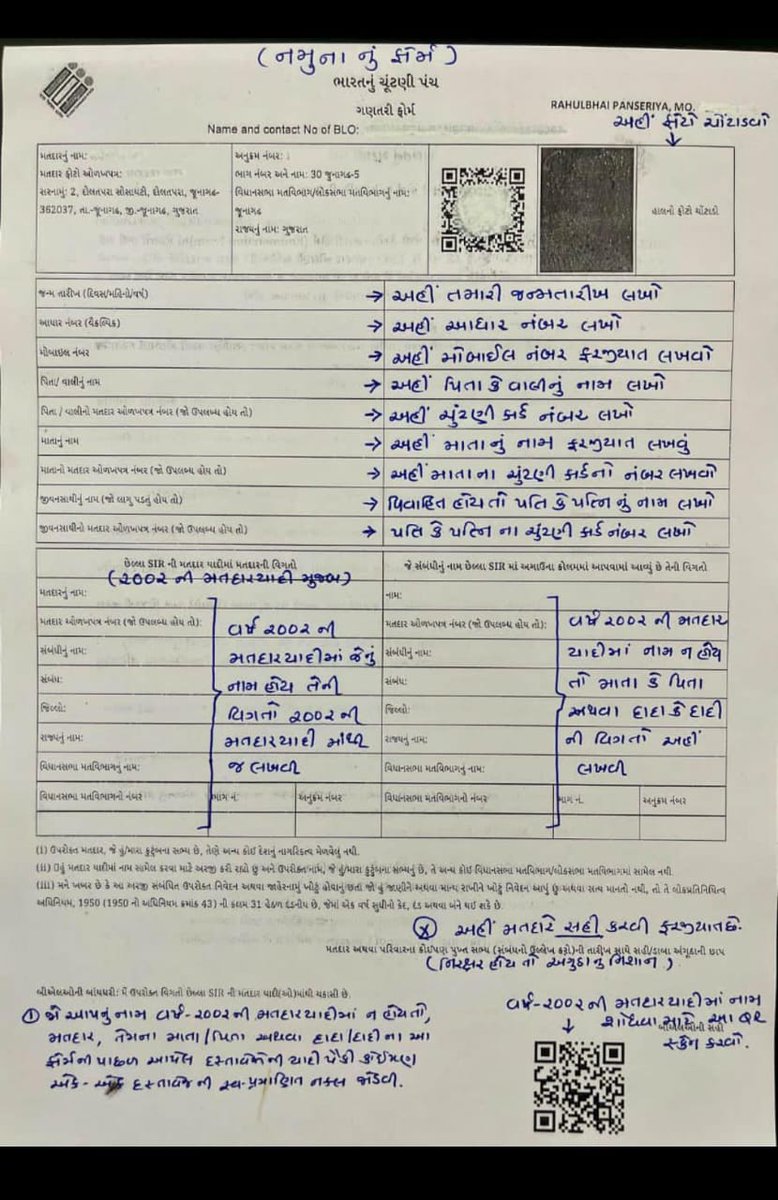 (નમુના નું ફોર્મ)
ભારતનું ચૂંટણી પંચ
ગણતરી ફોર્મ
RAHULBHAI PANSERIYA, MO.
Name and contact No of BLO:
અહીં ફોટો ચોંટાડવો
મતદારનું નામ:
મતદાર ફોટો ઓળખપત્ર:
સરનામું: 2, દોલતપરા સોસાયટી, દોલતપરા, જૂનાગઢ-
362037, તા.-જૂનાગઢ, જી.-જૂનાગઢ, ગુજરાત
અનુક્રમ નંબર:
ભાગ નંબર અને નામ: 30 જુનાગઢ-5
વિધાનસભા મતવિભાગ/લોકસભા મતવિભાગનું નામ:
જૂનાગઢ
રાજ્યનું નામ: ગુજરાત
હાલનો ફોટો ચોંટાડો
જન્મ તારીખ (દિવસ/મહિનો/વર્ષ) → અહીં તમારી જન્મતારીખ લખો
આધાર નંબર (વૈકલ્પિક) → અહીં આધાર નંબર લખો
મોબાઇલ નંબર → અહીં મોબાઈલ નંબર ફરજીયાત લખવો
પિતા/ વાલીનું નામ → અહીં પિતા કે વાલીનું નામ લખો
પિતા / વાલીનો મતદાર ઓળખપત્ર નંબર (જો ઉપલબ્ધ હોય તો) → અહીં ચુંટણી કાર્ડ નંબર લખો
માતાનું નામ → અહીં માતાનું નામ ફરજીયાત લખવું
માતાનો મતદાર ઓળખપત્ર નંબર (જો ઉપલબ્ધ હોય તો) → અહીં માતાના ચુંટણી કાર્ડનો નંબર લખવો
જીવનસાથીનું નામ (જો લાગુ પડતું હોય તો) → વિવાહિત હોય તો પતિ કે પત્નિ નું નામ લખો
જીવનસાથીનો મતદાર ઓળખપત્ર નંબર (જો ઉપલબ્ધ હોય તો) → પતિ કે પત્નિ ના ચુંટણી કાર્ડ નંબર લખો
છેલ્લા SIR ની મતદાર યાદીમાં મતદારની વિગતો
(૨૦૦૨ ની મતદારયાદી મુજબ)
મતદારનું નામ:
મતદાર ઓળખપત્ર નંબર (જો ઉપલબ્ધ હોય તો):
સંબંધીનું નામ:
સંબંધ:
જિલ્લો:
રાજ્યનું નામ:
વિધાનસભા મતવિભાગનું નામ:
વિધાનસભા મતવિભાગનો નંબર ભાગ નં. અનુક્રમ નંબર
વર્ષ ૨૦૦૨ ની
મતદારયાદીમાં જેનું
નામ હોય તેની
વિગતો ૨૦૦૨ ની
મતદારયાદી માંથી
જ લખવી
જે સંબંધીનું નામ છેલ્લા SIR માં અગાઉના કોલમમાં આપવામાં આવ્યું છે તેની વિગતો
નામ:
મતદાર ઓળખપત્ર નંબર (જો ઉપલબ્ધ હોય તો):
સંબંધીનું નામ:
સંબંધ:
જિલ્લો:
રાજ્યનું નામ:
વિધાનસભા મતવિભાગનું નામ:
વિધાનસભા મતવિભાગનો નંબર ભાગ નં. અનુક્રમ નંબર
વર્ષ ૨૦૦૨ ની મતદાર
યાદીમાં નામ ન હોય
તો માતા કે પિતા
અથવા દાદા કે દાદી
ની વિગતો અહીં
લખવી
(i) ઉપરોક્ત મતદાર, જે હું/મારા કુટુંબના સભ્ય છે, તેણે અન્ય કોઈ દેશનું નાગરિકત્વ મેળવેલું નથી.
(ii) હું મતદાર યાદીમાં નામ સામેલ કરવા માટે અરજી કરી રહ્યો છું અને ઉપરોક્ત નામ, જે હું/મારા કુટુંબના સભ્યનું છે, તે અન્ય કોઈ વિધાનસભા મતવિભાગ/લોકસભા મતવિભાગમાં સામેલ નથી.
(iii) મને ખબર છે કે આ અરજી સંબંધિત ઉપરોક્ત નિવેદન અથવા જાહેરનામું ખોટું હોવાનું છતાં જો હું જાણીને અથવા માન્ય રાખીને ખોટું નિવેદન આપું છું અથવા સત્ય માનતો નથી, તો તે લોકપ્રતિનિધિત્વ
અધિનિયમ, 1950 (1950 નો અધિનિયમ ક્રમાંક 43) ની કલમ 31 હેઠળ દંડનીય છે, જેમાં એક વર્ષ સુધીની કેદ, દંડ અથવા બંને થઈ શકે છે.
(X) અહીં મતદારે સહી કરવી ફરજીયાત છે.
મતદાર અથવા પરિવારના કોઈપણ પુખ્ત સભ્ય (સંબંધનો ઉલ્લેખ કરો)ની તારીખ સાથે સહી/ડાબા અંગૂઠાની છાપ
(નિરક્ષર હોય તો અંગુઠાનું નિશાન)
બીએલઓની બાંયધરી: મેં ઉપરોક્ત વિગતો છેલ્લા SIR ની મતદાર યાદી(ઓ)માંથી ચકાસી છે.
① જો આપનું નામ વર્ષ-૨૦૦૨ની મતદારયાદીમાં ન હોય તો,
મતદાર, તેમના માતા/પિતા અથવા દાદા/દાદી ના આ
ફોર્મની પાછળ આપેલ દસ્તાવેજોની યાદી પૈકી કોઈપણ
એક-એક દસ્તાવેજ ની સ્વ-પ્રમાણિત નકલ જોડવી.
વર્ષ-૨૦૦૨ની મતદારયાદીમાં નામ
શોધવા માટે આ QR
બીએલઓની સહી
સ્કેન કરવો.